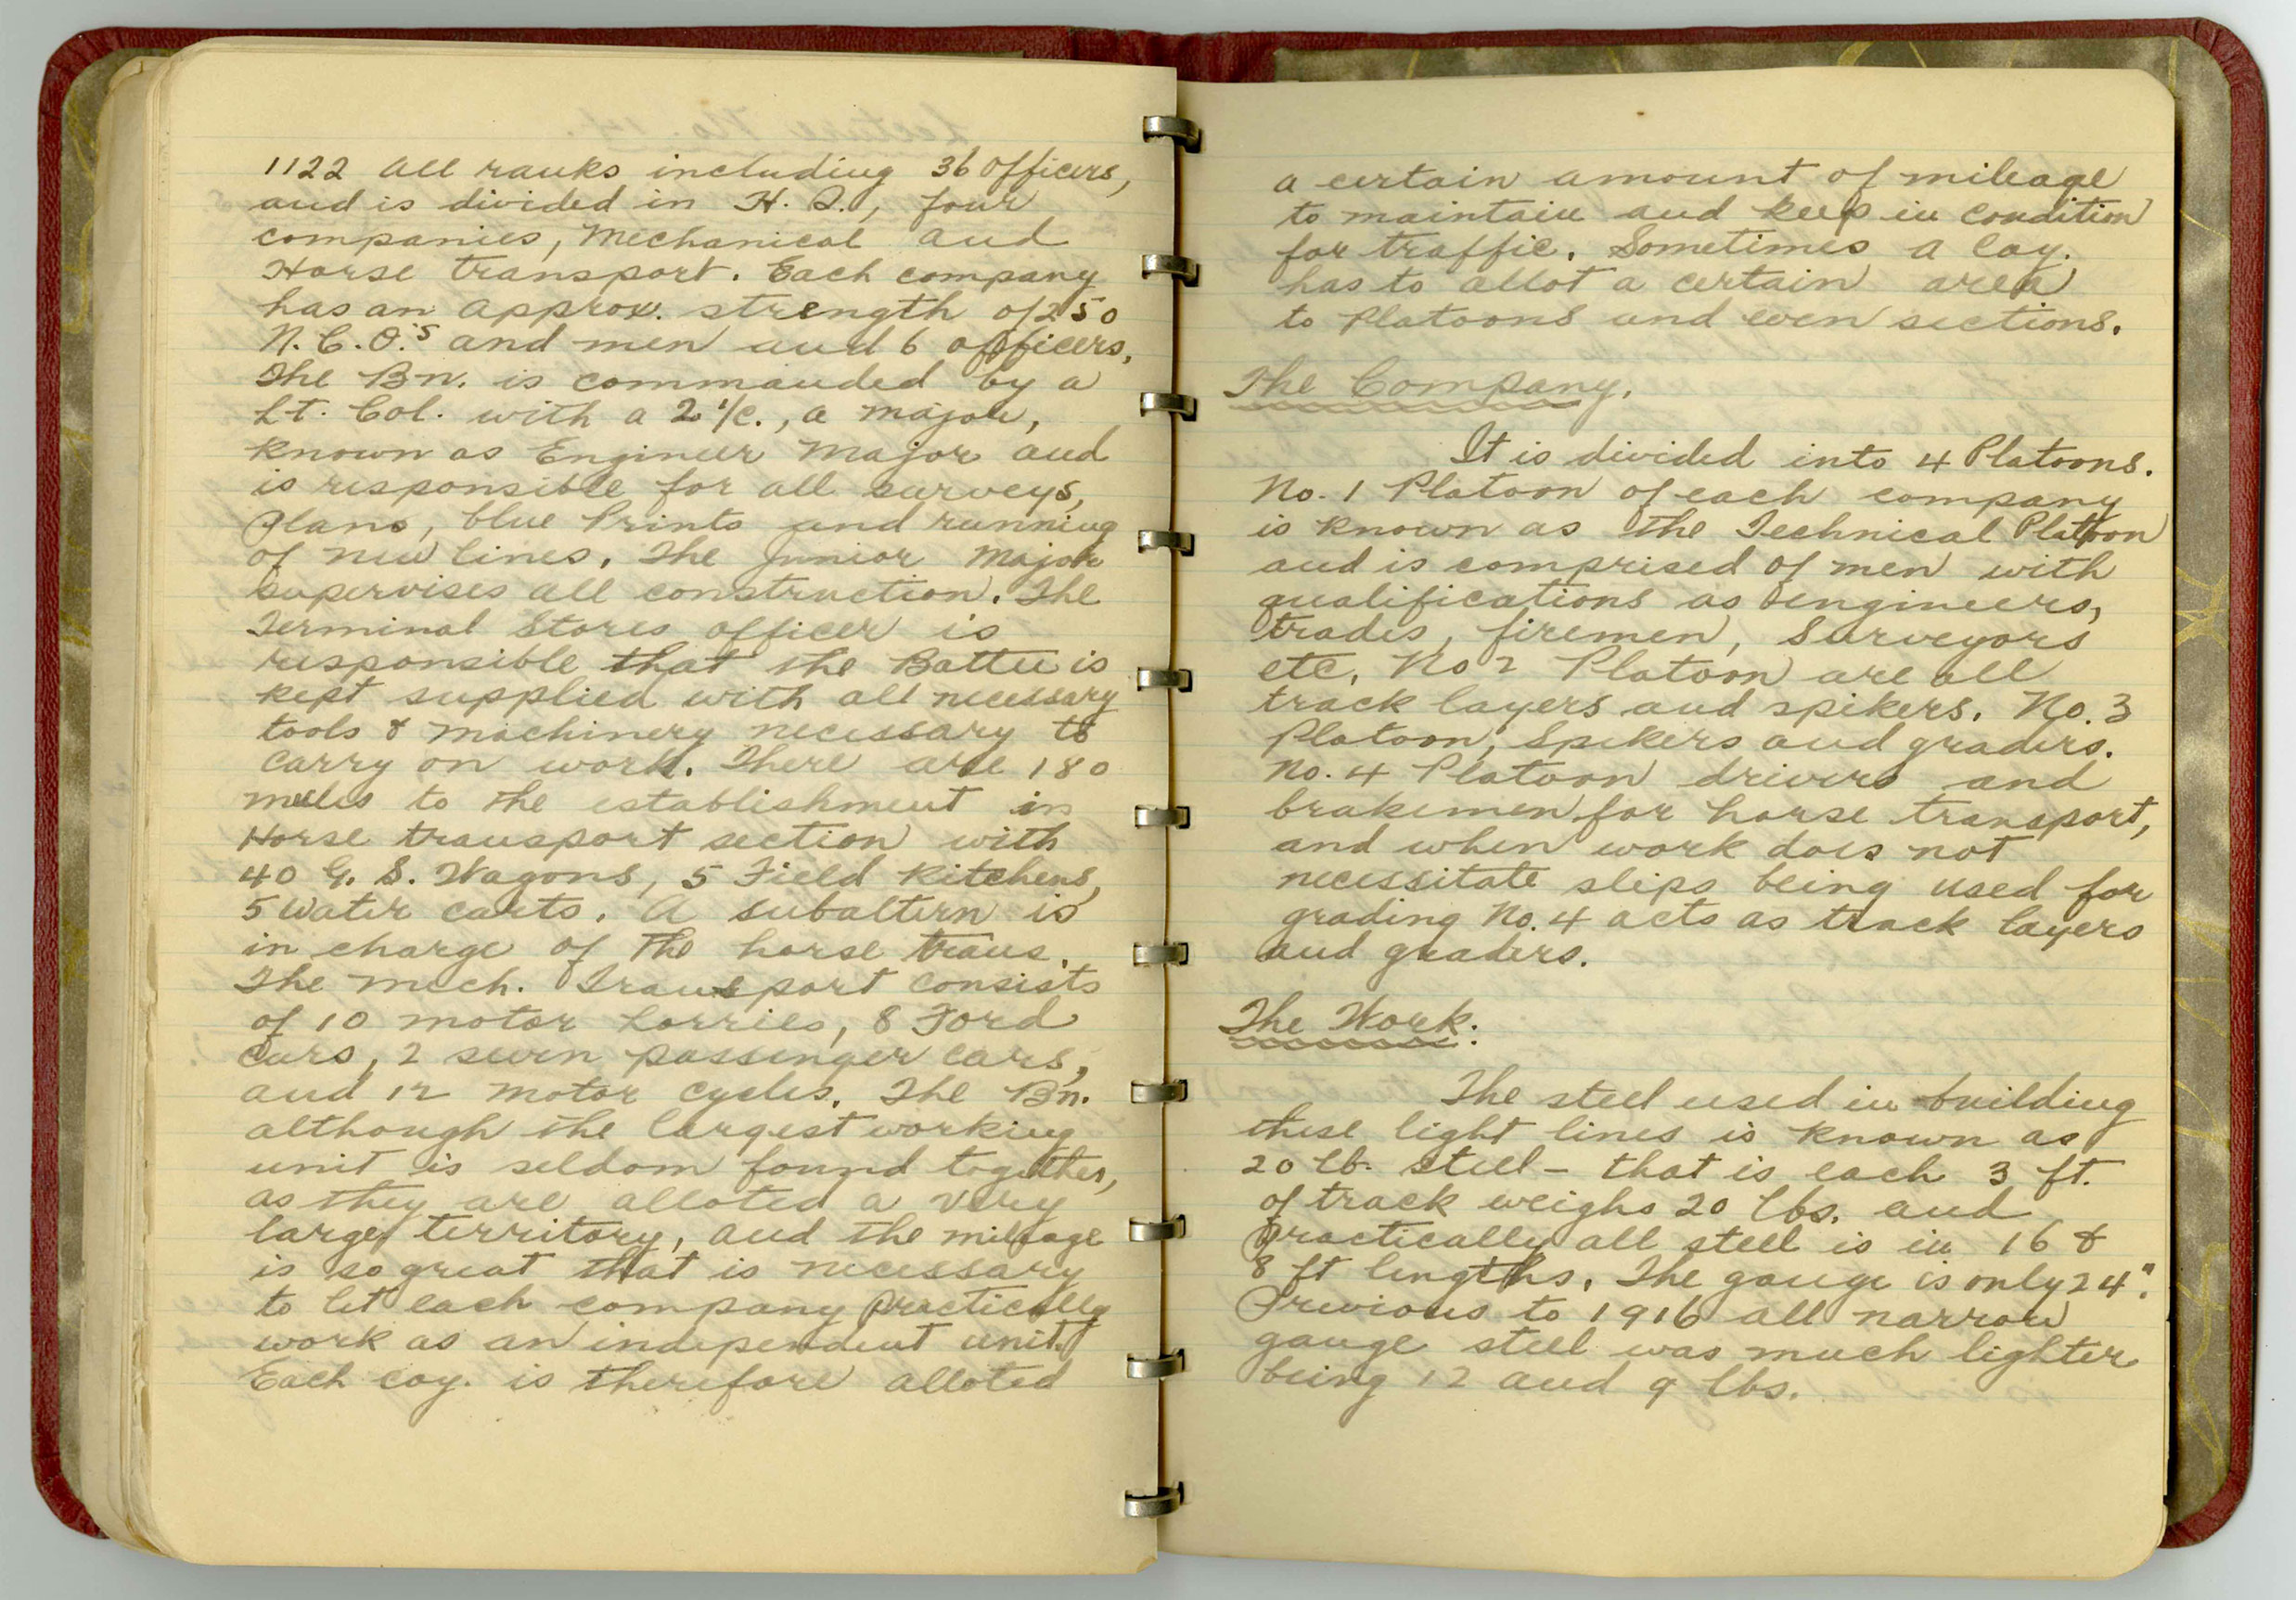 1122 all ranks including 36 Officers,
and is divided in H. Q., four
companies, Mechanical and
Horse transport. Each company
has an approx. strength of 250
N.C.O.'s and men and 6 officers.
The Bn. is commanded by a
Lt. Col. with a 2 i/c., a major,
known as Engineer Major and
is responsible for all surveys,
Plans, blue Prints and running
of new lines. The Junior Major
supervises all construction. The
Terminal Stores Officer is
responsible that the Batta is
kept supplied with all necessary
tools & machinery necessary to
carry on work. There are 180
mules to the establishment in
Horse transport section with
40 G. S. Wagons, 5 Field Kitchens,
5 Water carts. A subaltern is
in charge of the horse trans.
The mech. Transport consists
of 10 motor Lorries, 8 Ford
Cars, 2 seven passenger cars,
and 12 motor cycles. The Bn.
although the largest working
unit is seldom found together,
as they are alloted a very
large territory, and the mileage
is so great that is necessary
to let each company practically
work as an independent unit.
Each coy. is therefore alloted
a certain amount of mileage
to maintain and keep in condition
for traffic. Sometimes a Coy.
has to allot a certain area
to Platoons and even sections.
The Company.
It is divided into 4 Platoons.
No. 1 Platoon of each company
is known as the Technical Platoon
and is comprised of men with
qualifications as engineers,
trades, firemen, Surveyors
etc. No 2 Platoon are all
track layers and spikers. No. 3
Platoon, Spikers and graders.
No. 4 Platoon drivers and
brakemen for horse transport,
and when work does not
necessitate slips being used for
grading No. 4 acts as track layers
and graders.
The Work.
The steel used in building
these light lines is known as
20 lb. steel - that is each 3 ft.
of track weighs 20 lbs. and
practically all steel is in 16 &
8 ft lengths. The gauge is only 24".
Previous to 1916 all narrow
gauge steel was much lighter
being 12 and 9 lbs.